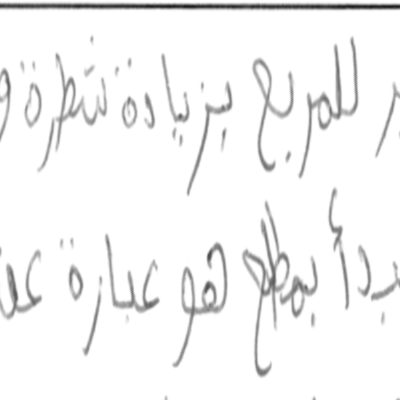 للمربع بزيادة شطرة
بدأ بمطلع هو عبارة عن